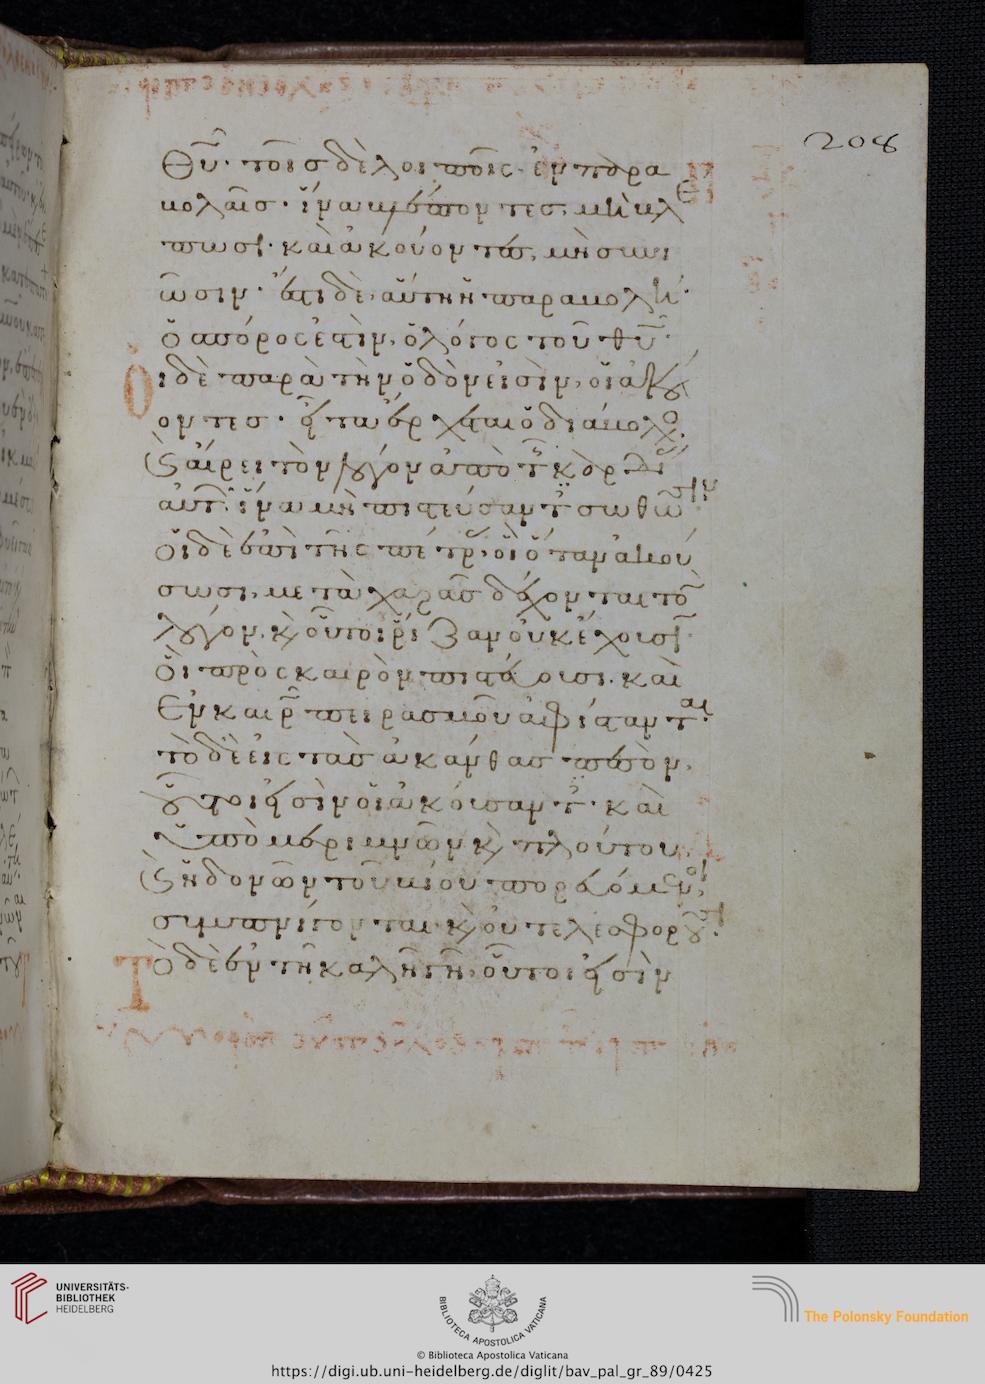 208
θυ̅· τοῖς δὲ λοιποῖς· ἐν παρα
βολαῖς· ἵνα βλέποντες, μὴ βλέ
πωσι· καὶ ἀκούοντες, μὴ συνι
ῶσιν· ἔστι δὲ, αὕτη ἡ παραβολή·
ὁ σπόρος ἐστὶν, ὁ λόγος τοῦ θυ̅·
Οἱ δὲ παρὰ τὴν ὁδὸν εἰσὶν, οἱ ἀκού
οντες· εἶτα ἔρχεται ὁ διάβολος
καὶ αἴρει τὸν λόγον ἀπὸ τῆς καρδί
αὐτῶν· ἵνα μὴ πιστεύσαντες σωθῶσιν·
οἱ δὲ ἐπὶ τῆς πέτρας, οἳ ὅταν ἀκού
σωσι, μετὰ χαρᾶς δέχονται τὸν
λόγον, καὶ οὗτοι ῥίζαν οὐκ ἔχουσι·
οἳ πρὸς καιρὸν πιστεύουσι. καὶ
ἐν καιρῷ πειρασμοῦ ἀφίστανται·
τὸ δὲ εἰς τὰς ἀκάνθας πεσὸν,
οὗτοι εἰσὶν οἱ ἀκούσαντες· καὶ
ὑπὸ μεριμνῶν καὶ πλούτου,
καὶ ἡδονῶν τοῦ βίου πορευόμενοι,
συμπνίγονται καὶ οὐ τελεσφοροῦσι·
Τὸ δὲ ἐν τῇ καλῇ γῇ, οὗτοι εἰσὶν
UNIVERSITÄTS-
BIBLIOTHEK
HEIDELBERG
BIBLIOTECA APOSTOLICA VATICANA
The Polonsky Foundation
© Biblioteca Apostolica Vaticana
https://digi.ub.uni-heidelberg.de/diglit/bav_pal_gr_89/0425